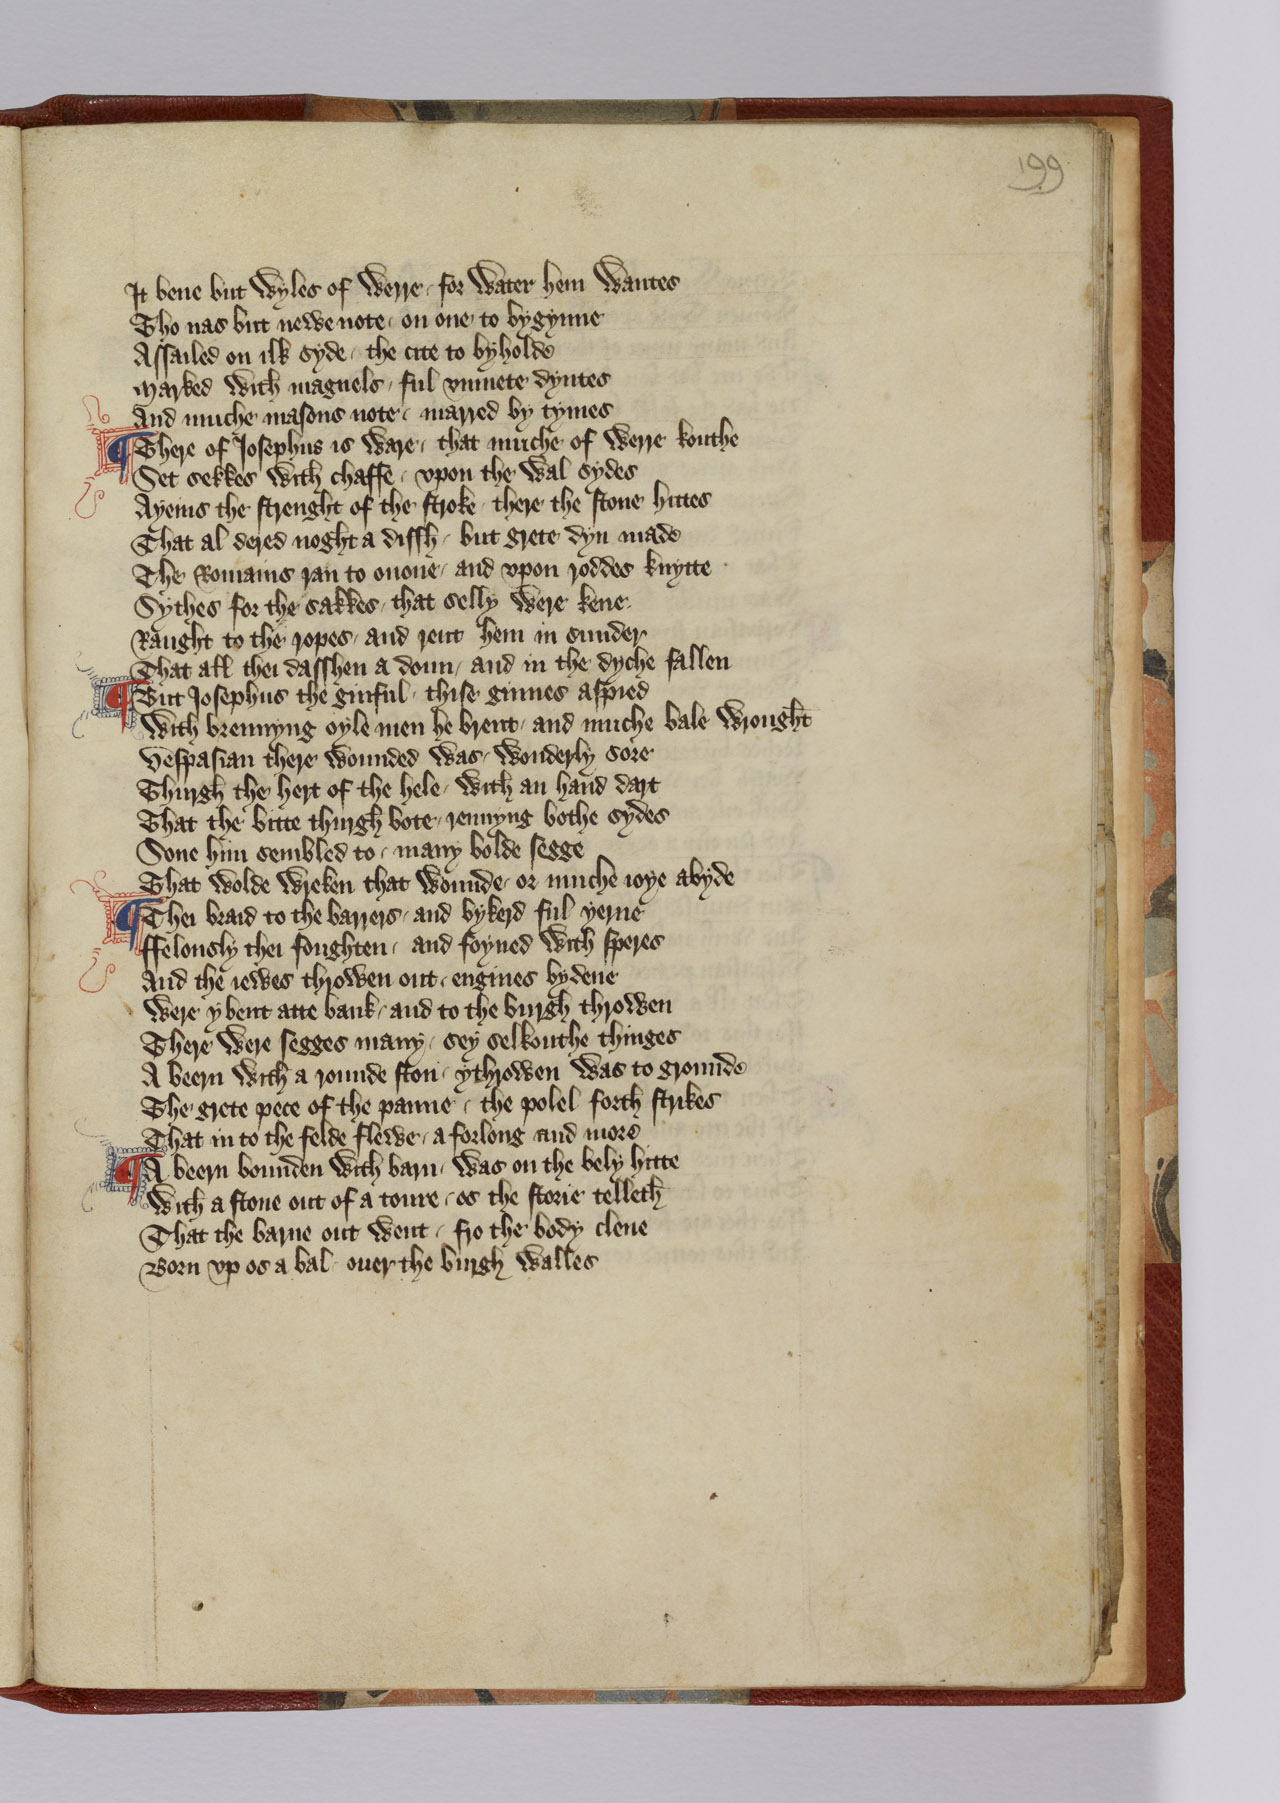 199
It bene but wyles of werre / for water hem wantes
Tho nas but newe note / on one to bygynne
Assailed on ilk syde / the cite to byholde
Marked with magnels / ful vnmete dyntes
And muche masons note / marred by tymes
¶ There of Josephus is ware / that muche of werre kouthe
Set sekkes with chaffe / vpon the wal sydes
Ayeins the strenght of the stroke / there the stone hittes
That al dered noght a dissh / but grete dyn made
The Romains ran to onone / and vpon roddes knytte
Sythes for the sakkes / that selly were kene
Raught to the ropes / and rent hem in sunder
That all thei dasshen a doun / and in the dyche fallen
¶ But Josephus the ginful / thise ginnes aspied
With brennyng oyle men he brent / and muche bale wrought
Vespasian there wounded was / wonderly sore
Thurgh the hert of the hele / with an hand dart
That the bitte thurgh bote / rennyng bothe sydes
Sone him sembled to / many bolde segge
That wolde wreken that wounde / or muche ioye abyde
¶ Thei braid to the barrers / and bykerd ful yerne
ffelonsly thei foughten / and foyned with speres
And the iewes throwen out / engines bydene
Were ybent atte bank / and to the burgh throwen
There were segges many / sey selkouthe thinges
A beern with a rounde ston / ythrowen was to grounde
The grete pece of the panne / the polel forth strikes
That in to the felde flewe / a forlong and more
¶ A beern bounden with barn / was on the bely hitte
With a stone out of a toure / os the storie telleth
That the barne out went / fro the body clene
Born vp os a bal / ouer the burgh walles